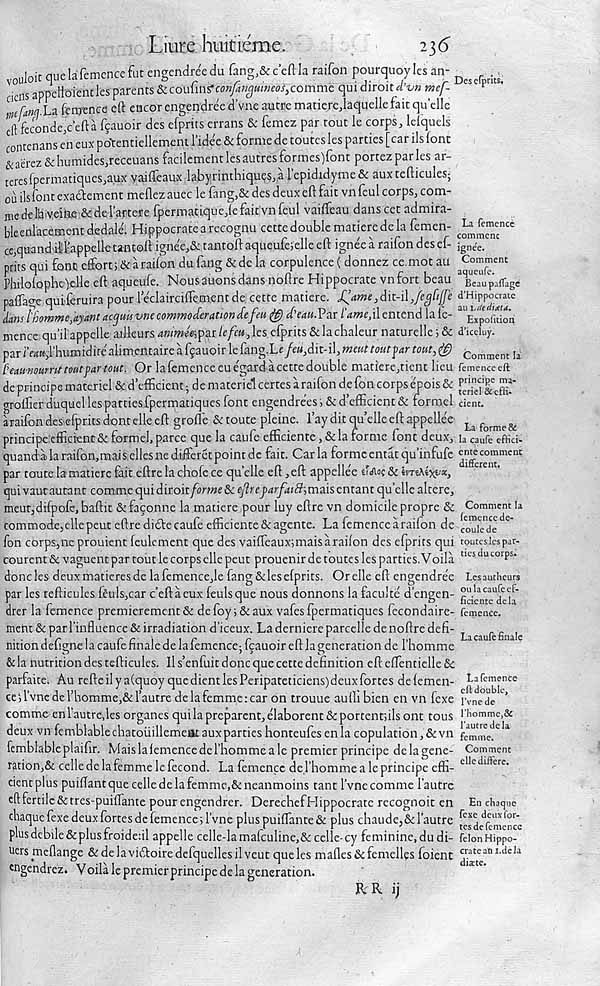 Liure huitiéme. 236
vouloit que la ſemence fut engendrée du ſang,& c'eſt la raiſon pourquoy les an-
ciens appelloient les parents & couſins conſanguineos, comme qui diroit d'vn meſ-
me ſang. La ſemence eſt encor engendrée d'vne autre matiere, laquelle fait qu'elle
eſt feconde, c'eſt à ſçauoir des eſprits errans & ſemez par tout le corps, leſquels
contenans en eux potentiellement l'idée & forme de toutes les parties [car ils ſont
& aërez & humides, receuans facilement les autres formes) ſont portez par les ar-
teres ſpermatiques, aux vaiſſeaux labyrinthiques, à l'epididyme & aux teſticules;
où ils ſont exactement meſlez auec le ſang, & des deux eſt fait vn ſeul corps, com-
me de la veine & de l'artere ſpermatique, ſe fait vn ſeul vaiſſeau dans cet admira-
ble enlacement dedalé. Hippocrate a recognu cette double matiere de la ſemen-
ce, quand il l'appelle tantoſt ignée, & tantoſt aqueuſe; elle eſt ignée à raiſon des eſ-
prits qui font effort; & à raiſon du ſang & de la corpulence ( donnez ce mot au
Philoſophe) elle eſt aqueuſe. Nous auons dans noſtre Hippocrate vn fort beau
paſſage qui ſeruira pour l'éclairciſſement de cette matiere. L'ame, dit-il, ſe gliſſe
dans l'homme, ayant acquis vne commoderation de feu & d'eau. Par l'ame, il entend la ſe-
mence qu'il appelle ailleurs animée; par le feu, les eſprits & la chaleur naturelle; &
par l'eau, l'humidité alimentaire à ſçauoir le ſang. Le feu, dit-il, meut tout par tout, &
l'eau nourrit tout par tout. Or la ſemence eu égard à cette double matiere, tient lieu
de principe materiel & d'efficient; de materiel certes à raiſon de ſon corps épois &
groſſier duquel les parties ſpermatiques ſont engendrées; & d'efficient & formel
à raiſon des eſprits dont elle eſt groſſe & toute pleine. I'ay dit qu'elle eſt appellée
principe efficient & formel, parce que la cauſe efficiente, & la forme ſont deux,
quand à la raiſon, mais elles ne differét point de fait. Car la forme entāt qu'infuſe
par toute la matiere fait eſtre la choſe ce qu'elle eſt, eſt appellée εἶδος & ἐντελέχεια,
qui vaut autant comme qui diroit forme & eſtre parfaict; mais entant qu'elle altere,
meut, diſpoſe, baſtit & façonne la matiere pour luy eſtre vn domicile propre &
commode, elle peut eſtre dicte cauſe efficiente & agente. La ſemence à raiſon de
ſon corps, ne prouient ſeulement que des vaiſſeaux; mais à raiſon des eſprits qui
courent & vaguent par tout le corps elle peut prouenir de toutes les parties. Voilà
donc les deux matieres de la ſemence, le ſang & les eſprits. Or elle eſt engendrée
par les teſticules ſeuls, car c'eſt à eux ſeuls que nous donnons la faculté d'engen-
drer la ſemence premierement & de ſoy; & aux vaſes ſpermatiques ſecondaire-
ment & par l'influence & irradiation d'iceux. La derniere parcelle de noſtre defi-
nition deſigne la cauſe finale de la ſemence; ſçauoir eſt la generation de l'homme
& la nutrition des teſticules. Il s'enſuit donc que cette definition eſt eſſentielle &
parfaite. Au reſte il y a (quoy que dient les Peripateticiens) deux ſortes de ſemen-
ce; l'vne de l'homme, & l'autre de la femme: car on trouue auſſi bien en vn ſexe
comme en l'autre, les organes qui la preparent, élaborent & portent; ils ont tous
deux vn ſemblable chatoüillement aux parties honteuſes en la copulation, & vn
ſemblable plaiſir. Mais la ſemence de l'homme a le premier principe de la gene-
ration, & celle de la femme le ſecond. La ſemence de l'homme a le principe effi-
cient plus puiſſant que celle de la femme, & neanmoins tant l'vne comme l'autre
eſt fertile & tres-puiſſante pour engendrer. Derechef Hippocrate recognoit en
chaque ſexe deux ſortes de ſemence; l'vne plus puiſſante & plus chaude, & l'autre
plus debile & plus froide: il appelle celle-la maſculine, & celle-cy feminine, du di-
uers meſlange & de la victoire deſquelles il veut que les maſles & femelles ſoient
engendrez. Voilà le premier principe de la generation.
RR ij
Des eſprits.
La ſemence
comment
ignée.
Comment
aqueuſe.
Beau paſſage
d'Hippocrate
au 1. de diæta.
Expoſition
d'iceluy.
Comment la
ſemence eſt
principe ma-
teriel & effi-
cient.
La forme &
la cauſe effici-
ente comment
different.
Comment la
ſemence de-
coule de
toutes les par-
ties du corps.
Les autheurs
ou la cauſe ef-
ficiente de la
ſemence.
La cauſe finale
La ſemence
eſt double,
l'vne de
l'homme, &
l'autre de la
femme.
Comment
elle differe.
En chaque
ſexe deux ſor-
tes de ſemence
ſelon Hippo-
crate au 1. de la
diæte.